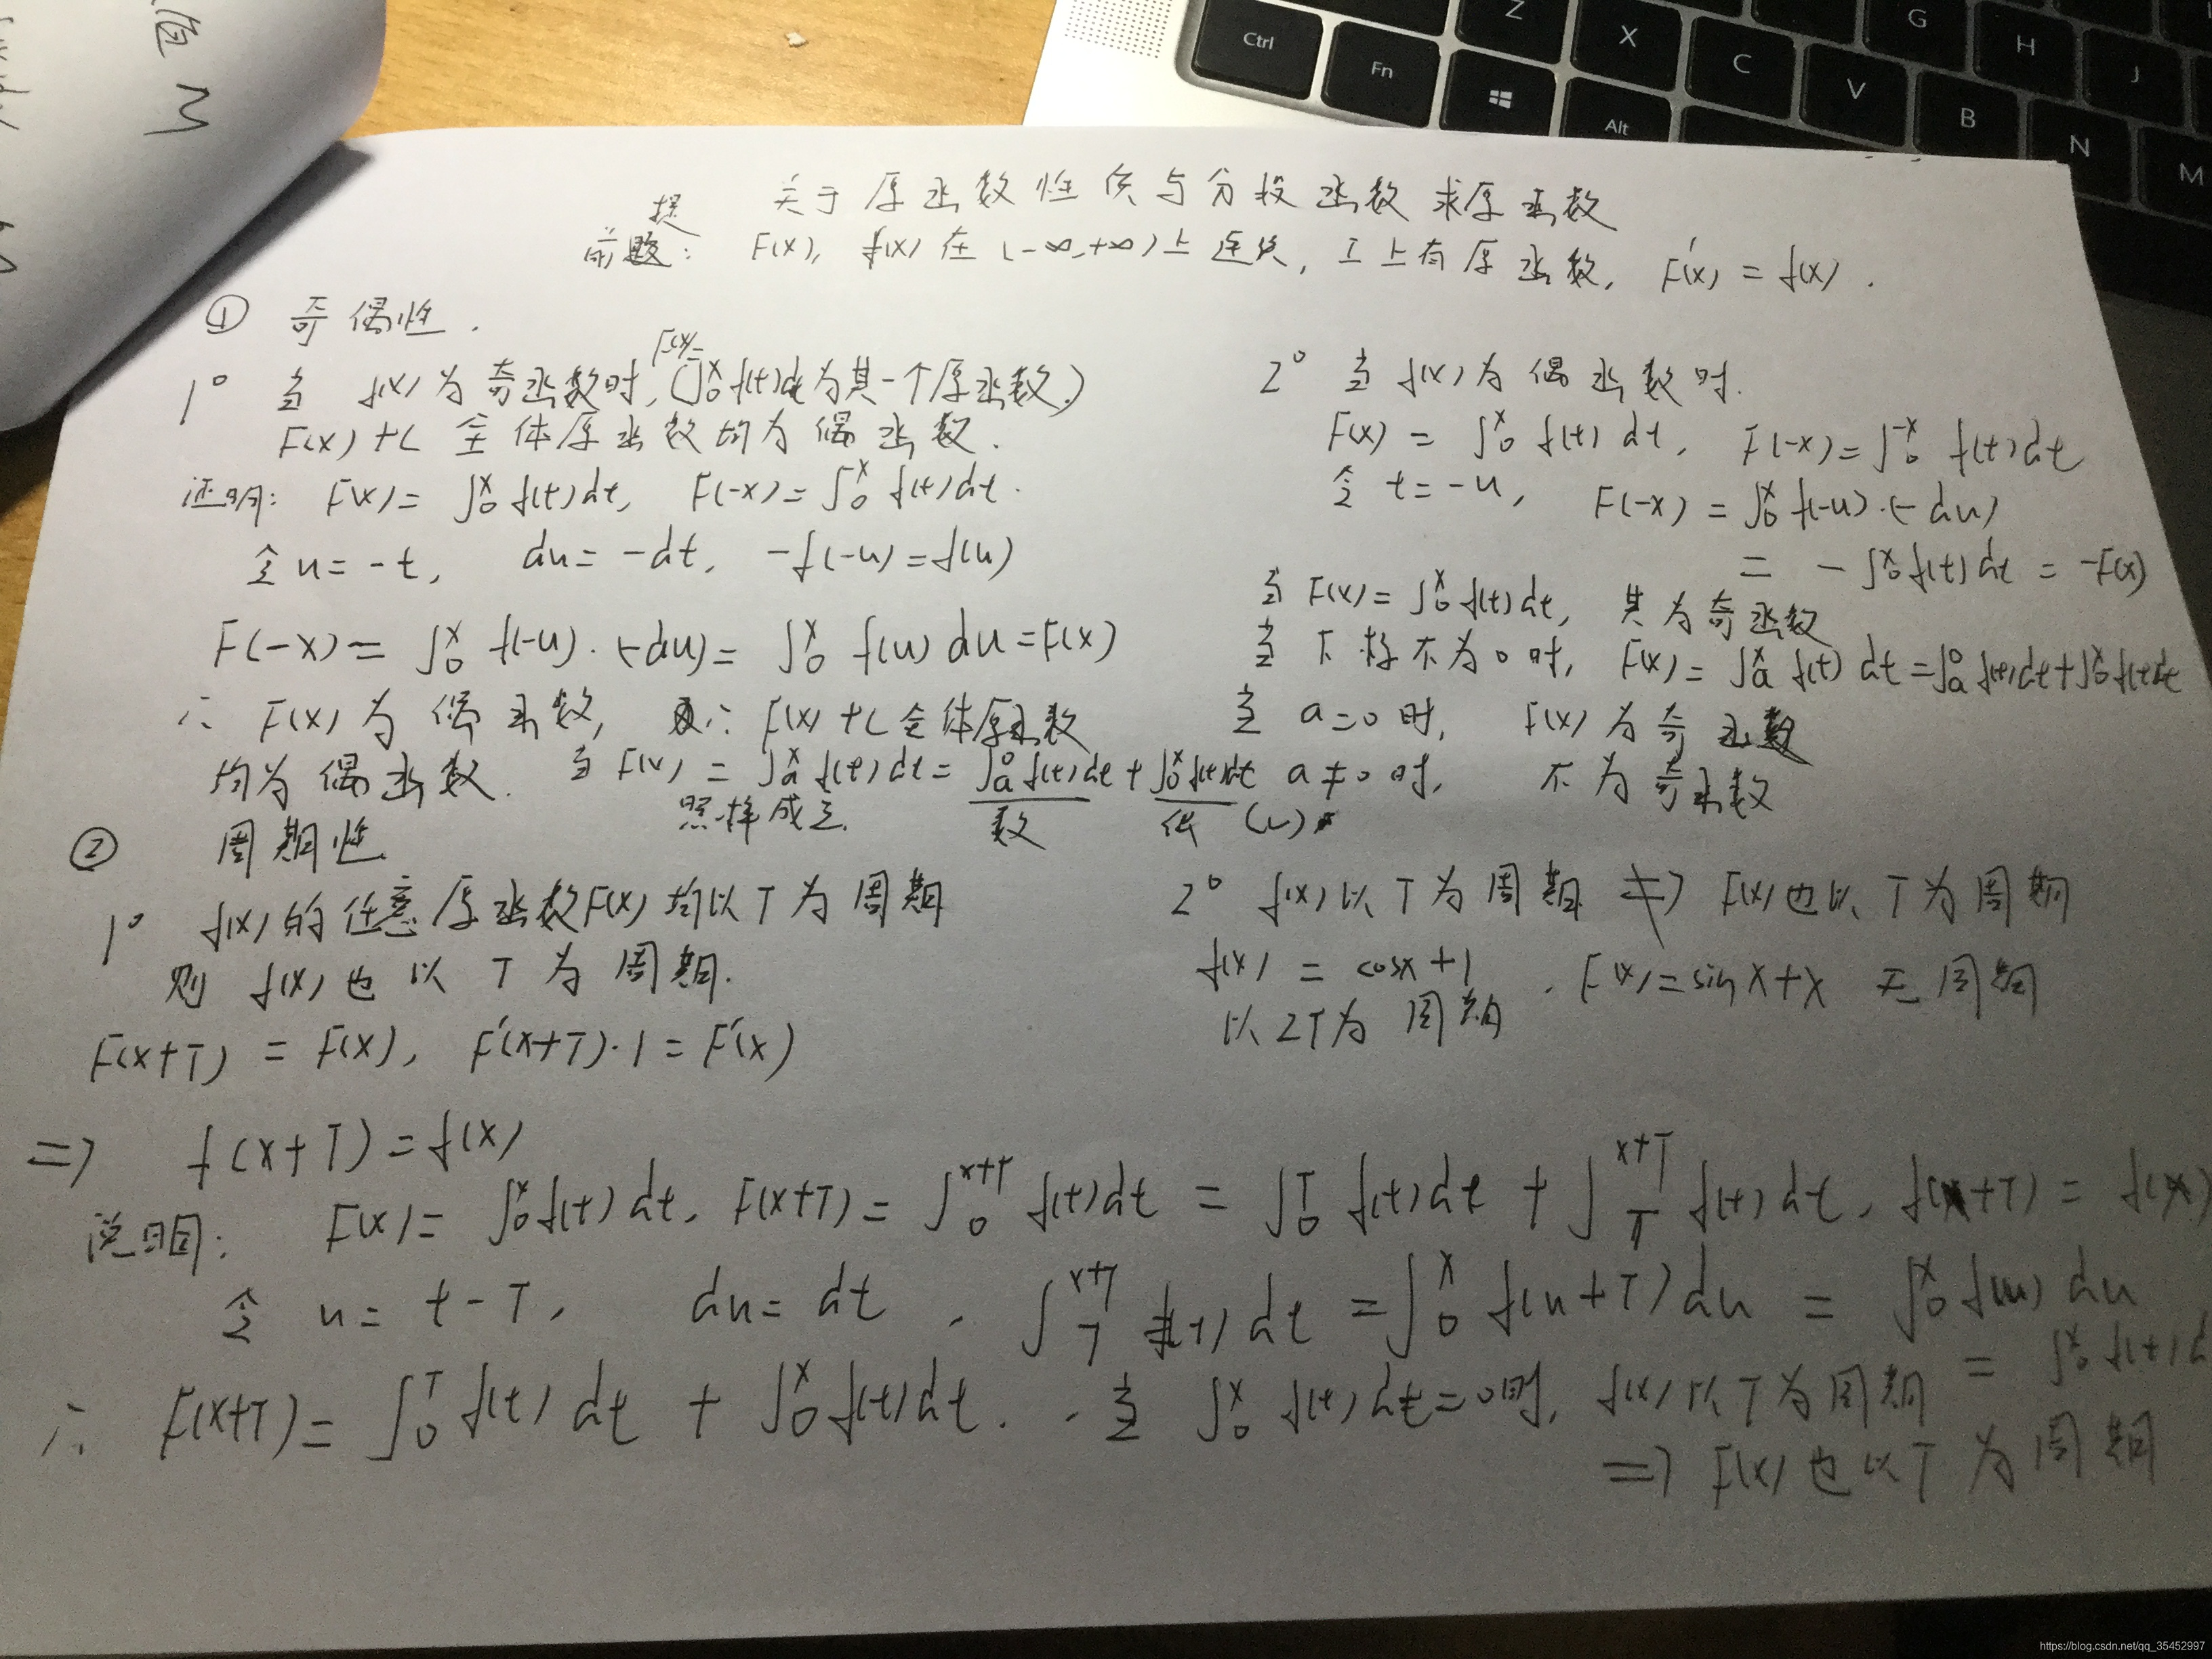 值 M
Ctrl Fn Alt Z X C V B N M G H J
关于原函数性质与分段函数求原函数
前提: F(x), f(x)在(-∞,+∞)上连续, I上有原函数, F'(x) = f(x).
① 奇偶性.
1° 当 f(x)为奇函数时, (F(x)=∫₀ˣ f(t)dt为其一个原函数.)
F(x)+C 全体原函数均为偶函数.
证明: F(x)= ∫₀ˣ f(t)dt, F(-x)= ∫₀ˣ f(t)dt.
令 u= -t, du= -dt, -f(-u)=f(u)
F(-x)= ∫₀ˣ f(-u)·(-du)= ∫₀ˣ f(u) du=F(x)
∴ F(x)为偶函数, ∴ F(x)+C全体原函数
均为偶函数. 当F(x) = ∫ₐˣ f(t)dt= ∫ₐ⁰ f(t)dt + ∫₀ˣ f(t)dt
照样成立. 数 偶 (C)
2° 当 f(x)为偶函数时.
F(x) = ∫₀ˣ f(t) dt, F(-x)= ∫₀⁻ˣ f(t)dt
令 t=-u, F(-x) = ∫₀ˣ f(-u)·(-du)
= -∫₀ˣ f(t)dt = -F(x)
当 F(x)= ∫₀ˣ f(t)dt, 其为奇函数
当下标不为0时, F(x)= ∫ₐˣ f(t) dt=∫ₐ⁰ f(t)dt+∫₀ˣ f(t)dt
当 a=0时, F(x)为奇函数
a≠0时, 不为奇函数
② 周期性
1° f(x)的任意原函数F(x)均以T为周期
则 f(x)也以T为周期.
F(x+T) = F(x), F'(x+T)·1=F'(x)
⇒ f(x+T)=f(x)
2° f(x)以T为周期 ⇏ F(x)也以T为周期
f(x) = cosx+1, F(x)=sinx+x 无周期
以2T为周期
说明: F(x)= ∫₀ˣ f(t)dt, F(x+T)= ∫₀ˣ⁺ᵀ f(t)dt = ∫₀ᵀ f(t)dt + ∫_T^{x+T} f(t)dt, f(x+T)= f(x)
令 u= t-T, du= dt, ∫_T^{x+T} f(t)dt =∫₀ˣ f(u+T)du = ∫₀ˣ f(u) du
= ∫₀ˣ f(t)d
∴ F(x+T)= ∫₀ᵀ f(t)dt + ∫₀ˣ f(t)dt. 当 ∫₀ˣ f(t)dt=0时, f(x)以T为周期
⇒ F(x)也以T为周期
https://blog.csdn.net/qq_35452997